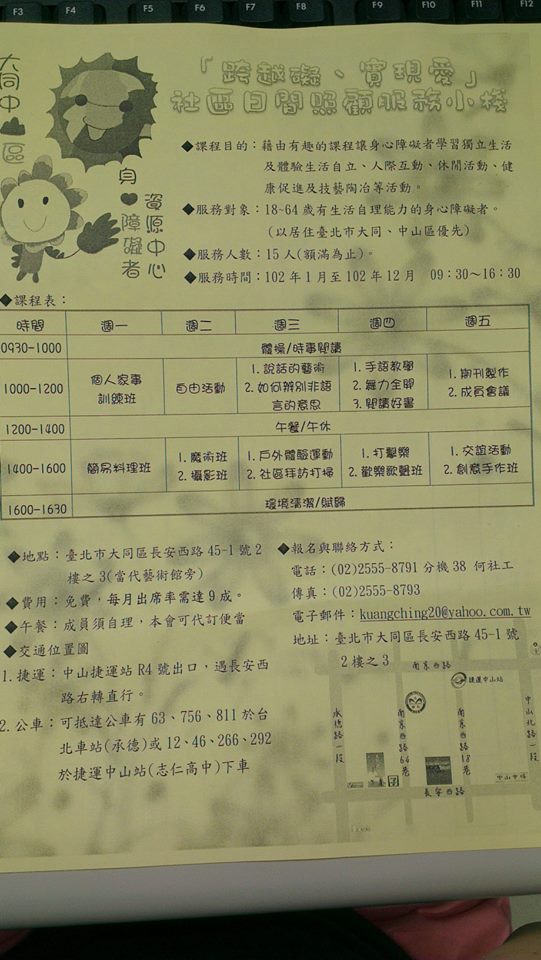 F3 F4 F5 F6 F7 F8 F9 F10 F11 F12
大同中山區
身心障礙者
資源中心
「跨越礙、實現愛」
社區日間照顧服務小棧
◆課程目的：藉由有趣的課程讓身心障礙者學習獨立生活
及體驗生活自立、人際互動、休閒活動、健
康促進及技藝陶冶等活動。
◆服務對象：18~64 歲有生活自理能力的身心障礙者。
(以居住臺北市大同、中山區優先)
◆服務人數：15 人(額滿為止)。
◆服務時間：102 年 1 月至 102 年 12 月 09：30～16：30
◆課程表：
時間 週一 週二 週三 週四 週五
0930-1000 體操/時事閱讀
1000-1200 個人家事訓練班 自由活動 1. 說話的藝術 2. 如何辨別非語言的意思 1. 手語教學 2. 舞力全開 3. 閱讀好書 1. 期刊製作 2. 成員會議
1200-1400 午餐/午休
1400-1600 簡易料理班 1. 魔術班 2. 攝影班 1. 戶外體驗運動 2. 社區拜訪打掃 1. 打擊樂 2. 歡樂歌聲班 1. 交誼活動 2. 創意手作班
1600-1630 環境清潔/賦歸
◆地點：臺北市大同區長安西路 45-1 號 2
樓之 3(當代藝術館旁)
◆費用：免費，每月出席率需達 9 成。
◆午餐：成員須自理，本會可代訂便當
◆交通位置圖
1. 捷運：中山捷運站 R4 號出口，遇長安西
路右轉直行。
2. 公車：可抵達公車有 63、756、811 於台
北車站(承德)或 12、46、266、292
於捷運中山站(志仁高中)下車
◆報名與聯絡方式：
電話：(02)2555-8791 分機 38 何社工
傳真：(02)2555-8793
電子郵件：kuangching20@yahoo.com.tw
地址：臺北市大同區長安西路 45-1 號
2 樓之 3
南京西路
捷運中山站
承德路一段
南京西路 64 巷
南京西路 18 巷
中山北路一段
長安西路